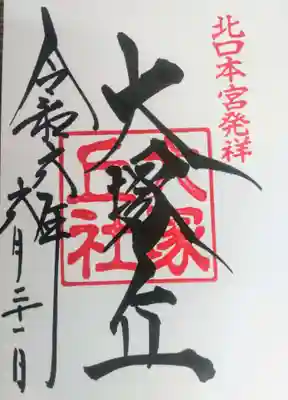 北口本宮発祥
大塚丘
大塚丘社
令和六年
六月二十一日